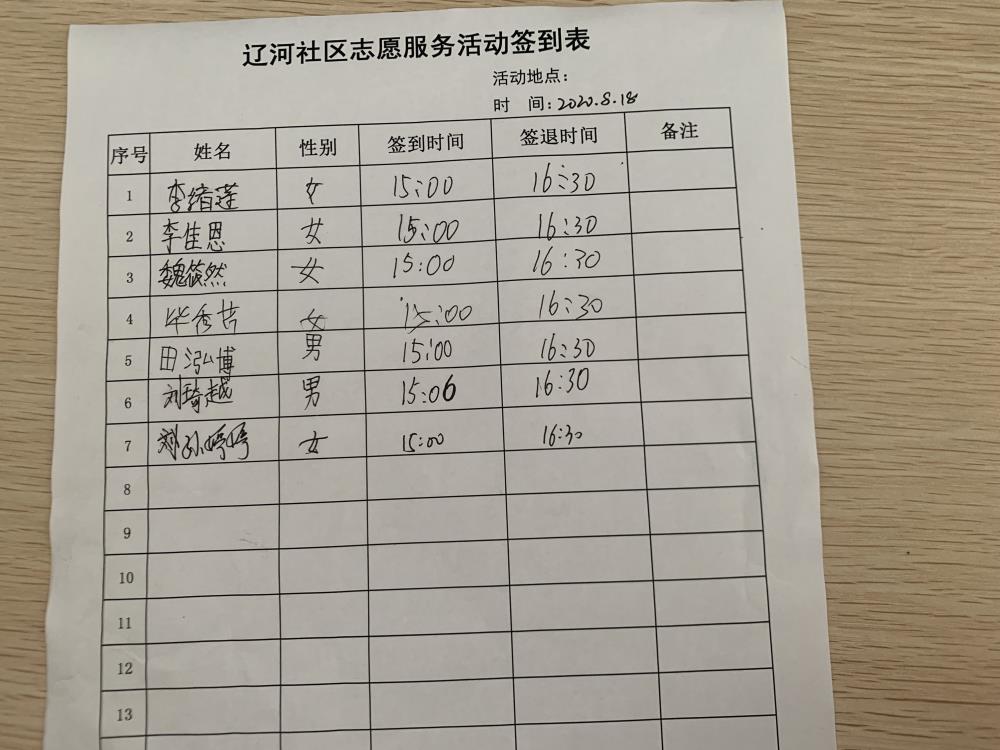 辽河社区志愿服务活动签到表
活动地点：
时 间：2020.8.18
序号 姓名 性别 签到时间 签退时间 备注
1 李绪莲 女 15:00 16:30
2 李佳恩 女 15:00 16:30
3 魏筱然 女 15:00 16:30
4 毕秀 女 15:00 16:30
5 田泓博 男 15:00 16:30
6 刘琦越 男 15:06 16:30
7 孙婷婷 女 15:00 16:30
8
9
10
11
12
13